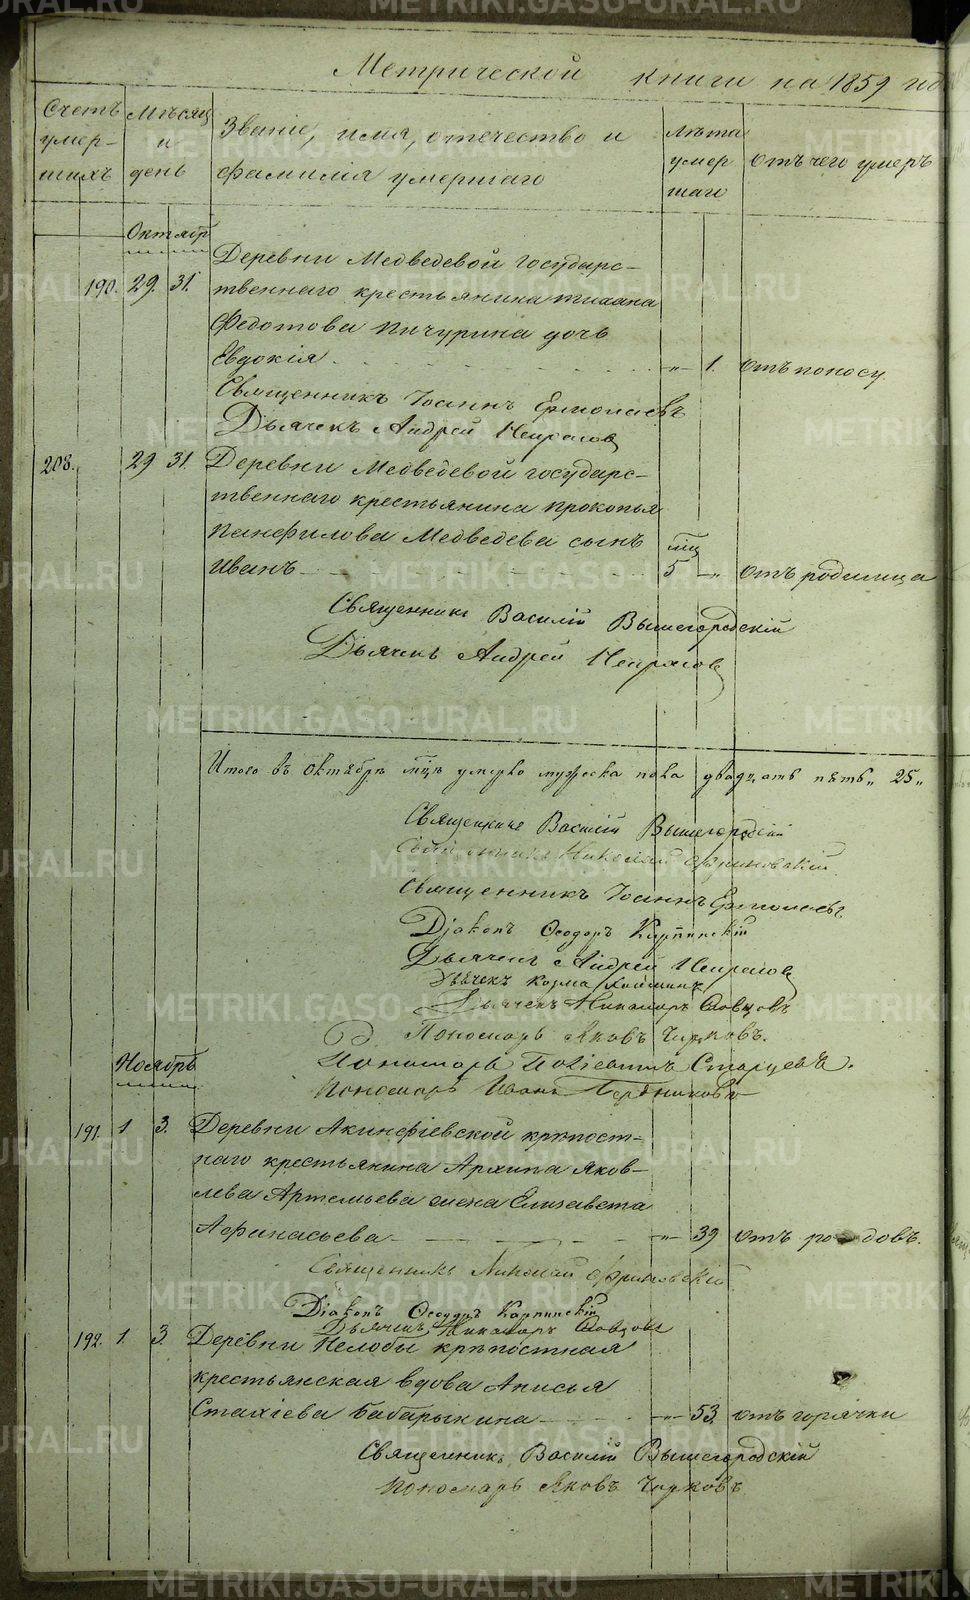 Метрической книги на 1859 год
Счетъ умер-шихъ
Мѣсяц и день
Званіе, имя, отечество и фамилія умершаго
Лѣта умер шаго
отъ чего умеръ
Октябрь
Деревни Медведевой государс-
190. 29. 31. твеннаго крестьянина
Федотова Пичурина дочь
Евдокія - - - „ 1. отъ поносу.
Священникъ Іоаннъ Ермолаевъ
Дьячекъ Андрей Некрасов
208. 29 31. Деревни Медведевой государс-
твеннаго крестьянина Прокопья
Панфилова Медведева сынъ
Иванъ - - - мц 5 - „ отъ родимца
Священникъ Василій Вышегородскій
Дьячекъ Андрей Некрасов
Итого въ Октябрѣ мцѣ умерло мужеска пола двадцать пять „ 25 „
Священникъ Василій Вышегородскій
Священникъ Николай
Священникъ Іоаннъ Ермолаевъ.
Діаконъ Ѳеодоръ Карпинскій
Дьячекъ Андрей Некрасов
Дьячекъ Козма
Дьячекъ Никаноръ Словцовъ
Пономарь Яковъ Чирковъ.
Пономарь Старцевъ.
Ноябрь
Пономарь Иванъ
191. 1 3. Деревни Акинфіевской крѣпост-
наго крестьянина Архипа Яков-
лева Артемьева жена Елизавета
Афанасьева - - - „ 39 отъ родовъ.
Священникъ Николай
Діаконъ Ѳеодоръ Карпинскій
Дьячекъ Никаноръ Словцовъ
192. 1. 3. Деревни Нелобы крѣпостная
крестьянская вдова Анисья
Стахіева Бабарыкина - - „ 53. отъ горячки
Священникъ Василій Вышегородскій
Пономарь Яковъ Чирковъ
METRIKI.GASO-URAL.RU